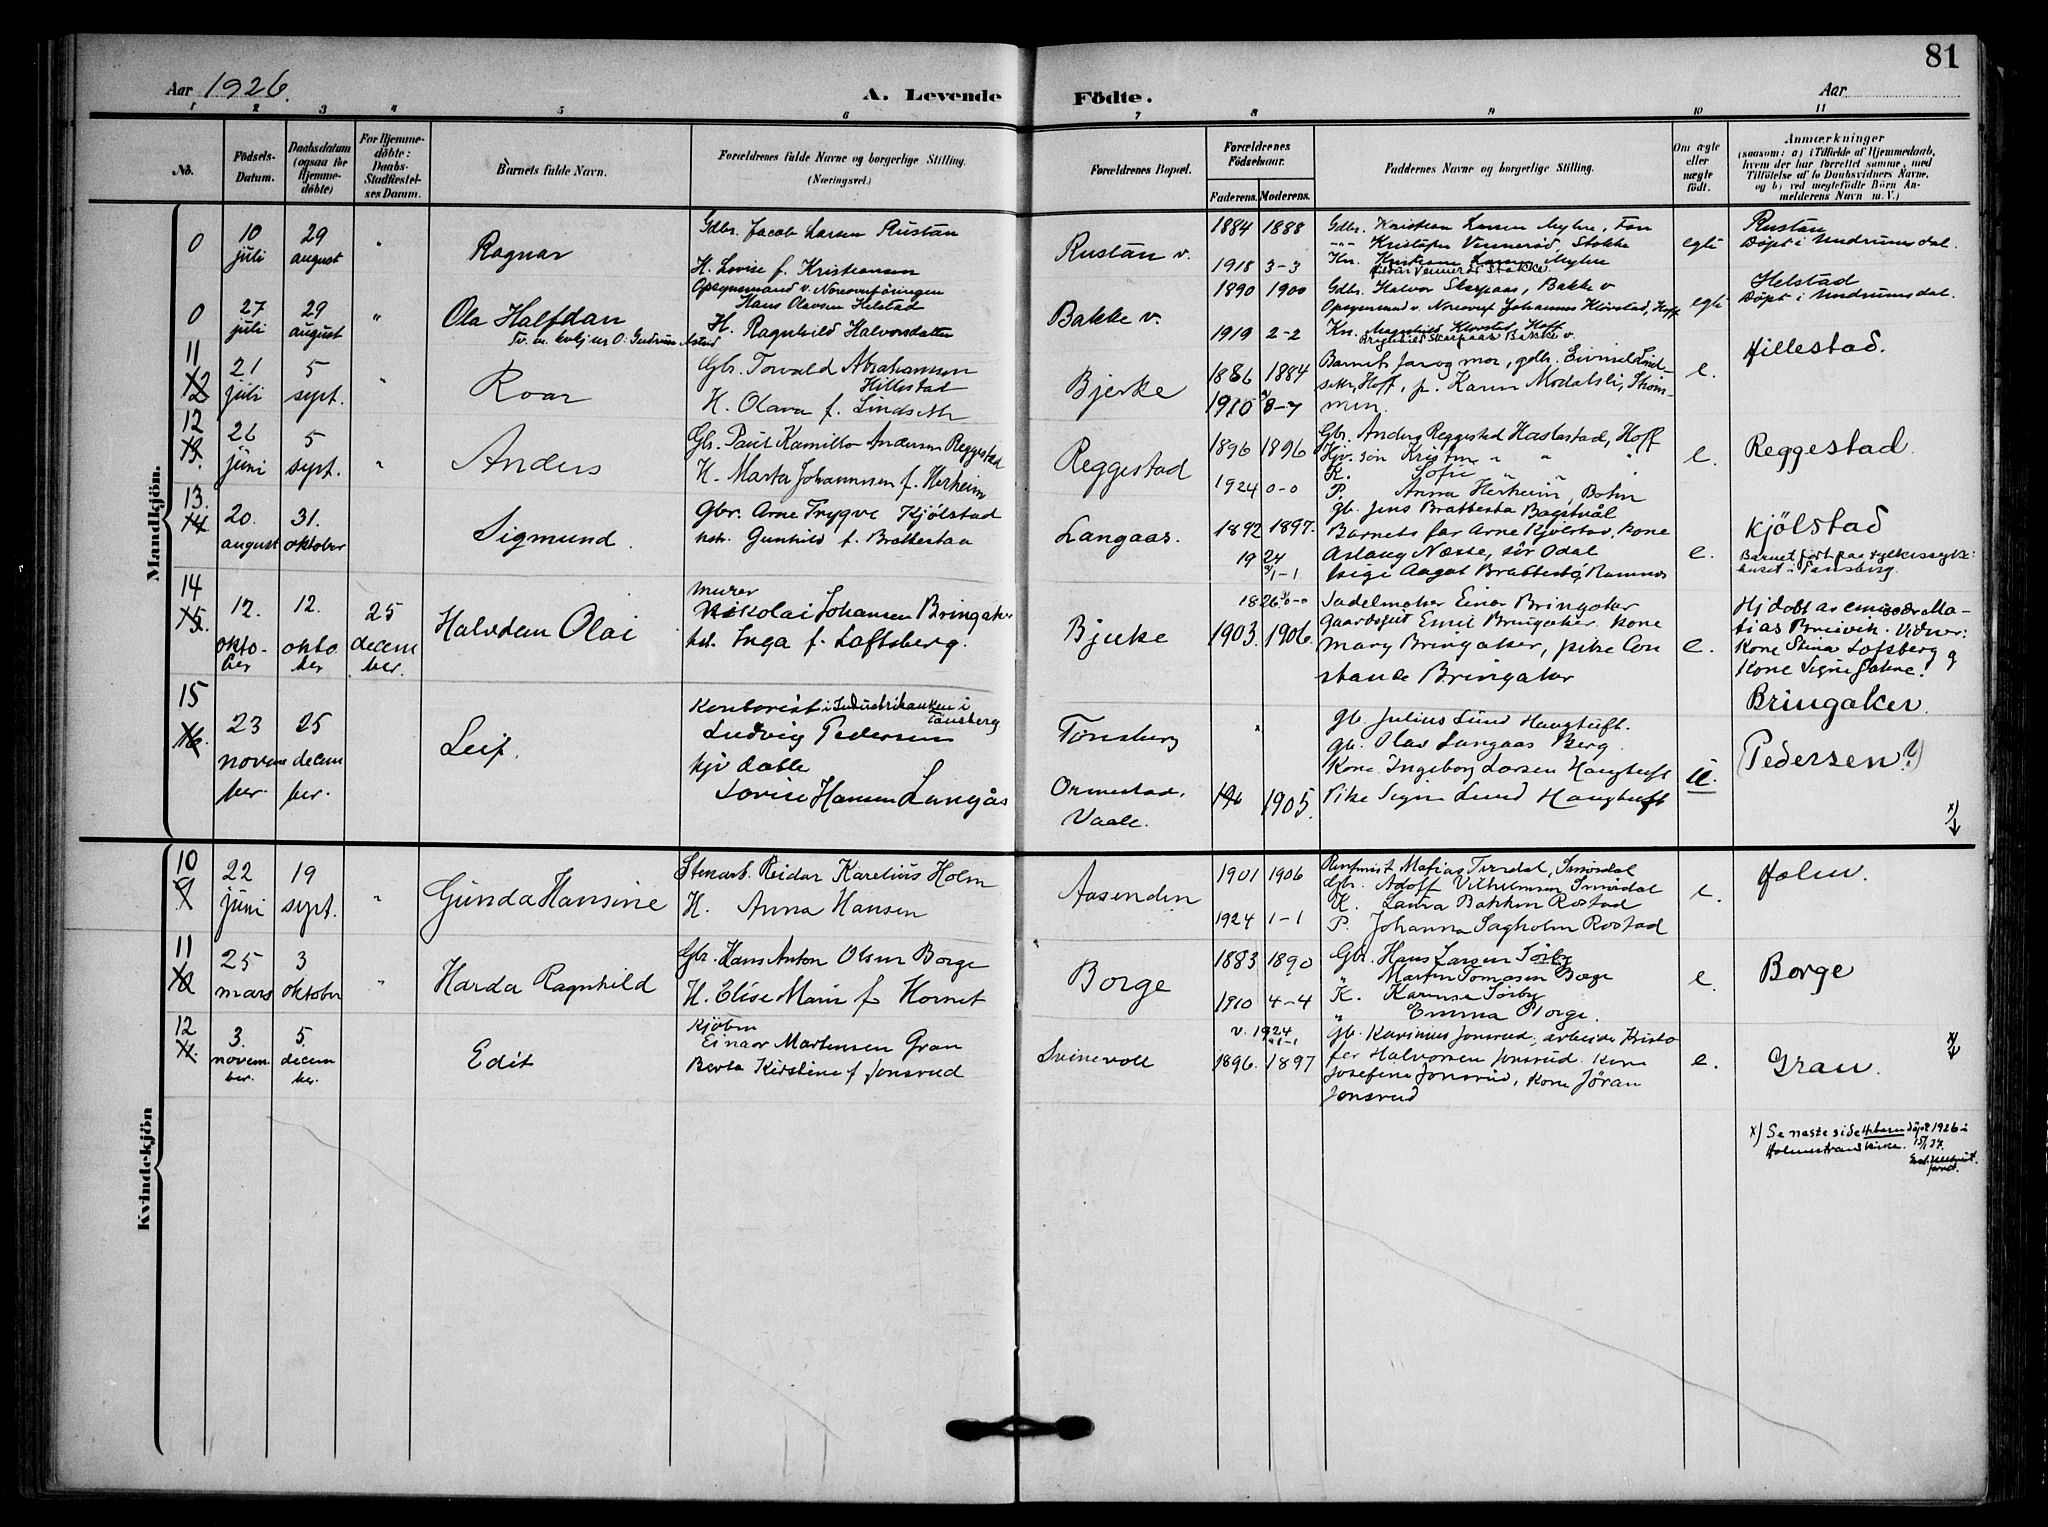 81
Aar 1926.
A. Levende Födte.
Aar
1 2 3 4 5 6 7 8 9 10 11
No.
Födsels-Datum.
Daabsdatum (ogsaa for Hjemme-döbte)
For Hjemme-döbte: Daabs-Stadfæstel-ses Datum.
Barnets fulde Navn.
Forældrenes fulde Navne og borgerlige Stilling.
(Næringsvei.)
Forældrenes Bopæl.
Forældrenes Födselsaar.
Faderens. Moderens.
Faddernes Navne og borgerlige Stilling.
Om ægte eller uægte födt.
Anmærkninger
(saasom: a) i Tilfælde af Hjemmedaab, hvem der har forrettet samme, med Tilföielse af to Daabsvidners Navne, og b) ved uægtefödte Börn An-melderens Navn m. V.)
Mandkjön.
0
10 juli
29 august
"
Ragnar
Gdbr. Jacob Larsen Rustan
H. Lovise f. Kristiansen
Rustan v.
1884 1888
1918 3-3
Gdbr. Kristian Larsen Myhre, Fon
-"- Kristofer Vennerød, Stokke
Kn. Kristiane Larsen Myhre
Vennerød Stokke
egte
Rustan
Döpt i Undrumsdal.
0
27 juli
29 august
"
Ola Halfdan
Opsynsmand v. Noreoverföringen
Hans Olavsen Helstad
H. Ragnhild Halvorsdatter
Bakke v.
1890 1900
1919 2-2
Gdbr. Halvor Skarpaas, Bakke v
Opsynsmand v Noreovf Johannes Klövstad, Hoff
Kn. Magnhild Klovstad, Hoff
Skarpaas Bakke v.
egte
Helstad
Döpt i Undrumsdal.
11
12
21 juli
5 sept.
"
Roar
Gbr. Torvald Abrahamsen
Hillestad
H. Olava f. Lindseth
Bjerke
1886 1884
1910 8-7
Barnets far og mor, gdbr. Lind-
seth, Hoff, p. Karen Modalsli, Strøm-
men.
e.
Hillestad.
12
13.
26 juni
5 sept.
"
Anders
Gbr. Paul Kamillo Andersen Reggestad
H. Marta Johannesen f. Herheim
Reggestad
1896 1896
1924 0-0
Gbr. Anders Reggestad Haslestad, Hoff
Hjv. søn Kristian " " "
K. Sofie " " "
P. Anna Herheim, Bohn
e.
Reggestad
13.
14
20. august
31. oktober
Sigmund.
Gbr. Arne Trygve Kjölstad
hstr. Gunhild f. Brattestaa
Langaas.
1892 1897.
1924 1-1
gb. Jens Brattestø Bagstvål
Barnets far Arne Kjölstad, kone
Aslaug Næsse, sör Odal
pige Aagot Brattestø, Ramnes
e.
Kjölstad
Barnet født paa fylkessyke:
huset i Tønsberg.
14
15.
12. oktober
12. oktober
25 december.
Halvdan Olai
murer
Nikolai Johansen Bringaker
hst. Inga f. Loftsberg.
Bjerke
1926 0-0
1903. 1906.
Sadelmaker Einar Bringaker
Gaardsgut Emil Bringaker. kone
Mary Bringaker, pike Con
stance Bringaker
e.
Hjdøbt av emissær Ma-
tias Breivik. Vidner:
Kone Stina Lofsberg og
Kone Signe
Bringaker
15
16.
23 november.
25 december.
Leif.
Kontorist i Industribanken i
Tønsberg
Ludvig Pedersen
hjv datter
Lovise Hansen Langås
Tönsberg
Ormestad,
Vaale.
1905.
gb. Julius Lund Haugtuft.
gb. Olav Langaas Berg.
Kone Ingeborg Larsen Haugtuft
Pike Signe Lund Haugtuft
u.
(Pedersen?)
x)
Kvindekjön
10
9
22 juni
19 sept.
"
Gunda Hansine
Stenarb. Reidar Karelius Holm
H. Anna Hansen
Aasenden
1901 1906
1924 1-1
Matias Tverdal, Smørdal
Gbr. Adolf Vilhelmsen Smørdal
K. Laura Bakken Rostad
P. Johanna Sagholm Rostad
e.
Holm.
11
10
25 mars
3 oktober
"
Harda Ragnhild
Gbr. Hans Anton Olsen Borge
H. Elise Marie f Hornet
Borge
1883 1890
1910 4-4
Gbr. Hans Larsen Sörby
" Martin Tomasen Borge
K. Karense Sörby
" Emma Borge.
e.
Borge
12
11.
3. november.
5. december.
Edit
Kjøbm
Einar Martensen Gran
Berta Kirstine f Jonsrud
Svinevoll
v. 1924
1-1
1896. 1897
Gb. Karinius Jonsrud, arbeider Kristo
fer Halvorsen Jonsrud. Kone
Josefine Jonsrud, Kone Jöran
Jonsrud
e.
Gran.
x)
x) Se næste side 4 barn döpt 1926 i
Holmestrand kirke. 15/1 27.